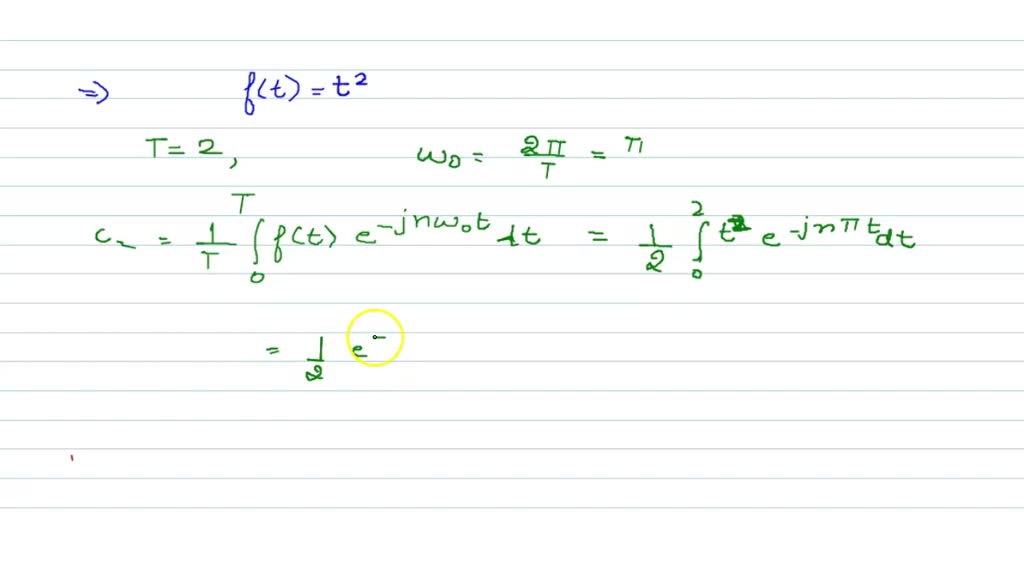 ⇒ f(t) = t²
T = 2, ω₀ = 2π/T = π
cₙ = 1/T ∫₀ᵀ f(t) e^{-jnω₀t} dt = 1/2 ∫₀² t² e^{-jnπt} dt
= 1/2 e^{-